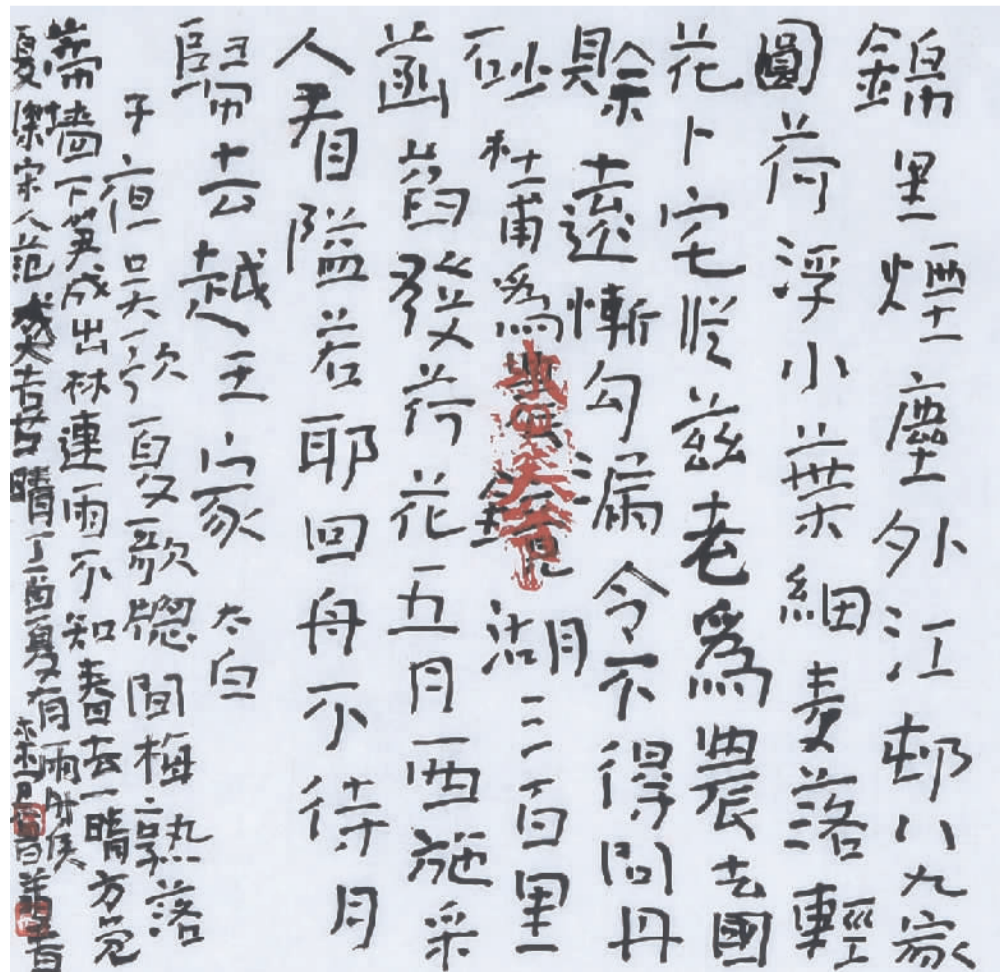 錦里煙塵外江邨八九家
圓荷浮小葉細麦落輕
花卜宅從兹老爲農去國
賖遠慚勾漏令不得問丹
砂杜甫爲農鏡湖三百里
菡萏發荷花五月西施采
人看隘若耶回舟不待月
歸去越王家 太白
子夜吴歌夏歌窓間梅熟落
蒂墻下笋成出林連雨不知春去一晴方覚
夏深宋人范成大喜晴丁酉夏有雨時候